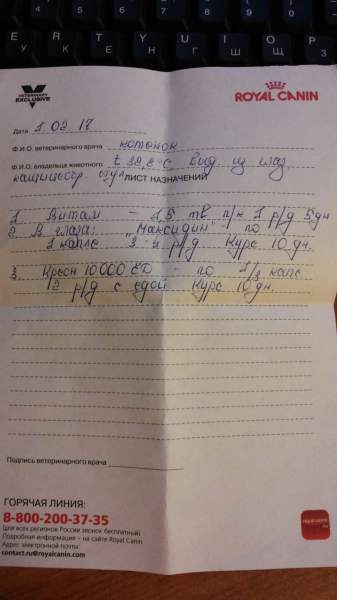 E R T Y U I O P
VETERINARY
EXCLUSIVE
ROYAL CANIN
Дата 1.02.17
Ф.И.О. ветеринарного врача котенок
Ф.И.О. владельца животного t 38,8°C из глаз,
ЛИСТ НАЗНАЧЕНИЙ
1 Витам - 1,5 п/к 1 р/д 5 дн
2 В глаза: "Максидин" по
1 капле 3-4 р/д Курс 10 дн.
3. Креон 10000 ЕД - по 1/3 капс.
2 р/д с едой Курс 10 дн.
Подпись ветеринарного врача
ГОРЯЧАЯ ЛИНИЯ:
8-800-200-37-35
(для всех регионов России звонок бесплатный)
Подробная информация – на сайте Royal Canin
Адрес электронной почты:
contact.ru@royalcanin.com
royal canin